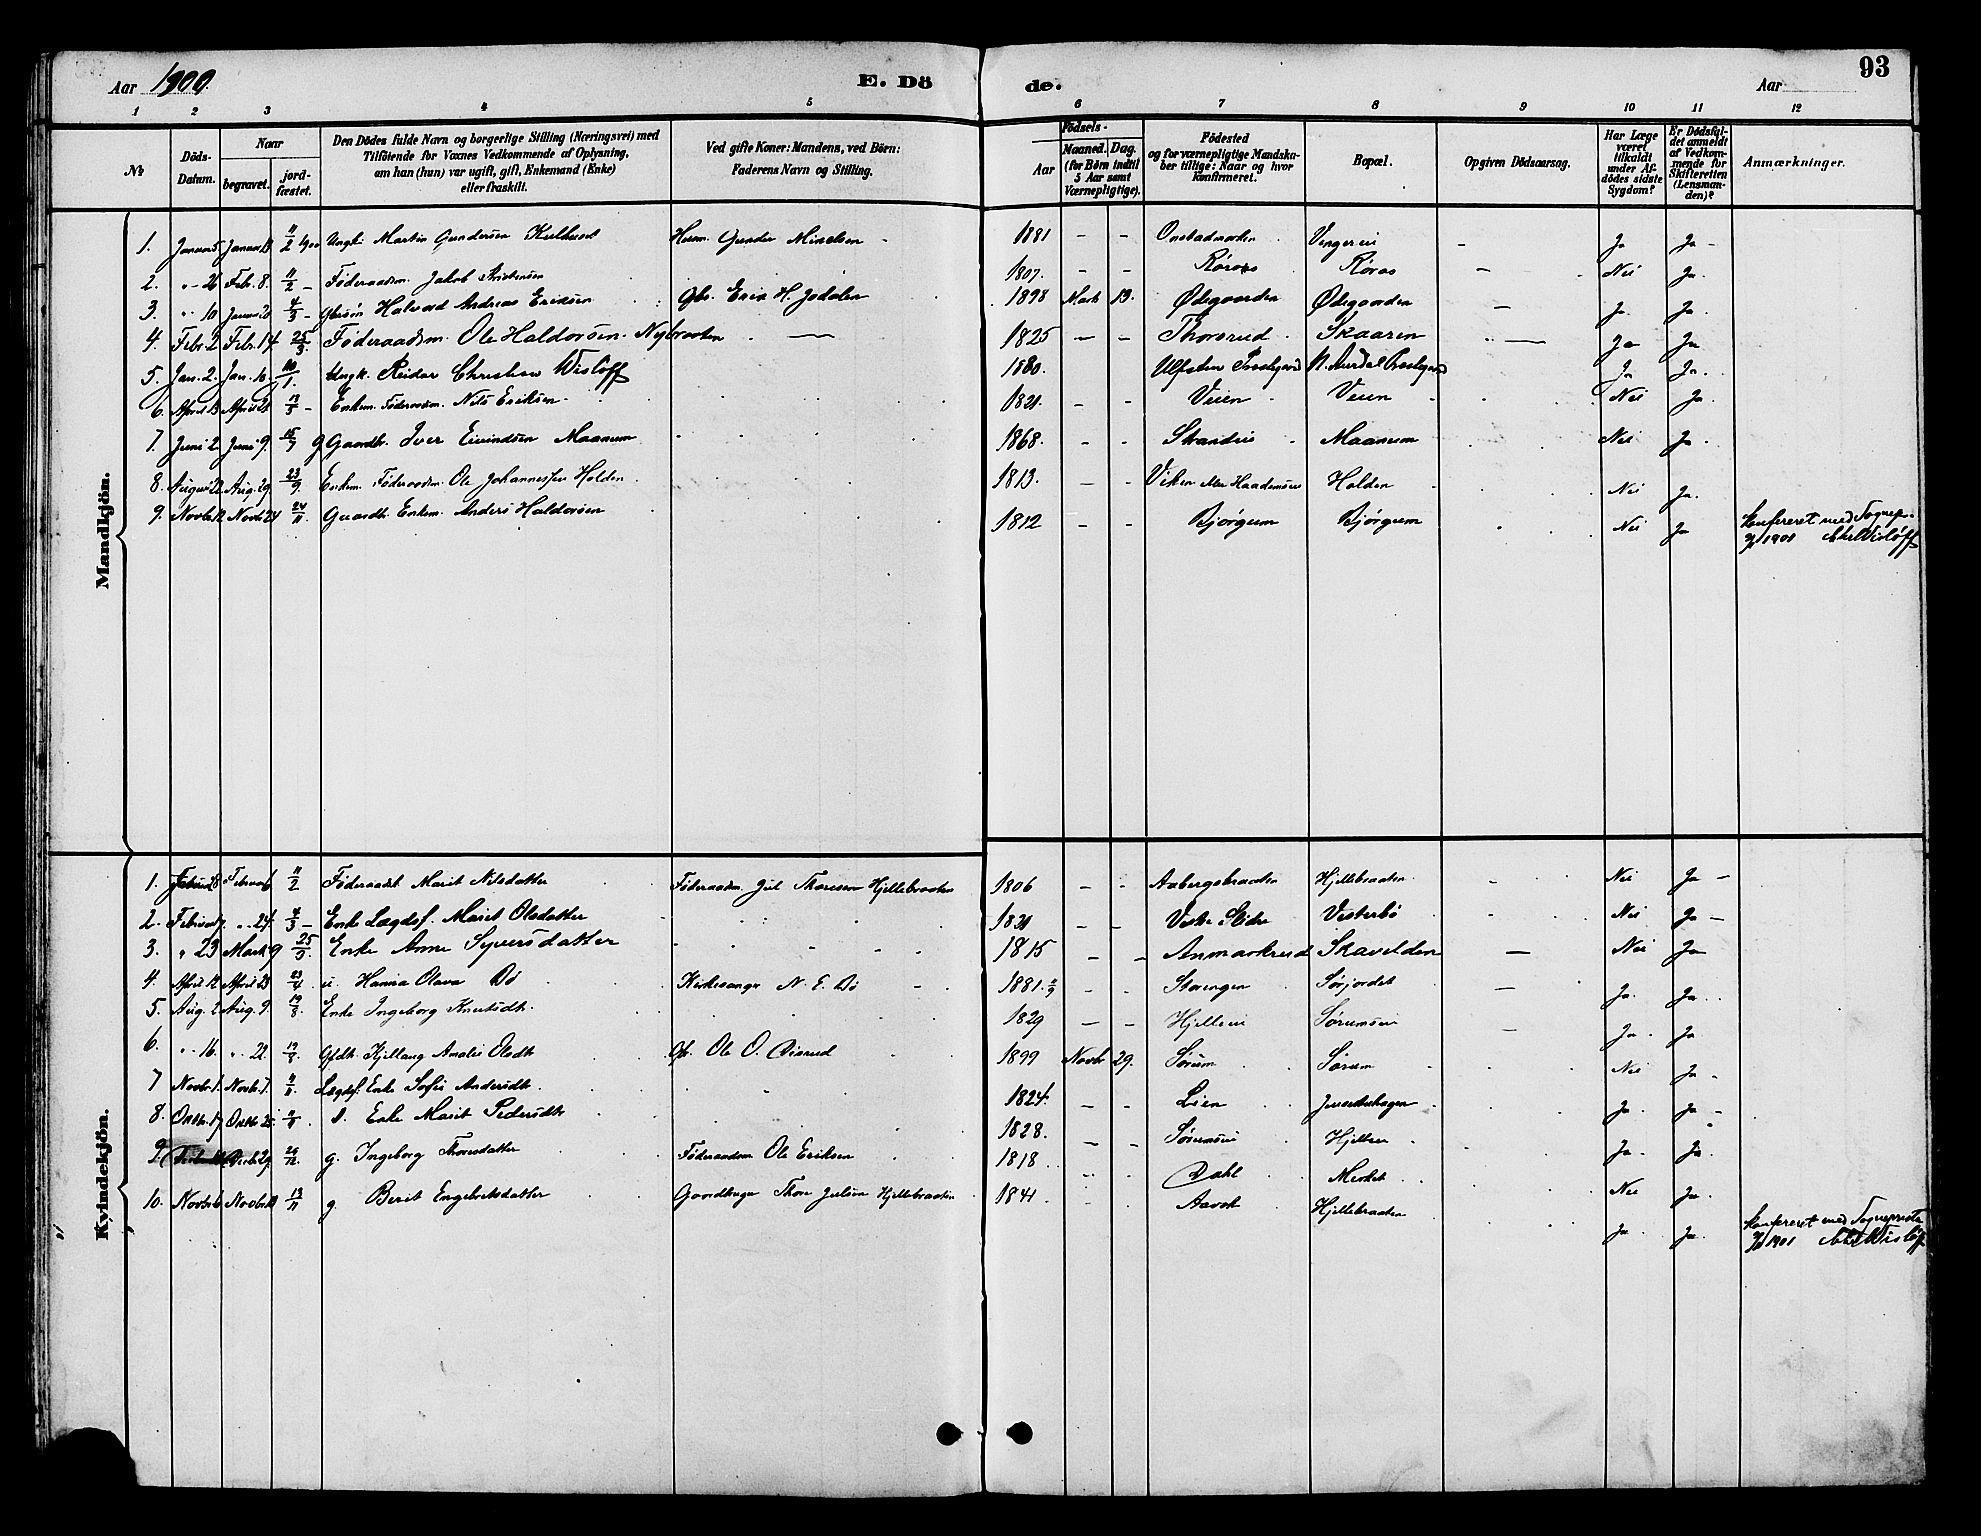 Aar 1900.
E. Dö
de.
Aar
93
1 2 3 4 5 6 7 8 9 10 11 12
No
Döds-Datum.
Naar
begravet.
jord-fæstet.
Den Dödes fulde Navn og borgerlige Stilling (Næringsvei) med
Tilföiende for Voxnes Vedkommende af Oplysning,
om han (hun) var ugift, gift, Enkemand (Enke)
eller fraskilt.
Ved gifte Koner: Mandens, ved Börn:
Faderens Navn og Stilling.
Födsels-
Aar
Maaned. Dag.
(for Börn indtil
5 Aar samt
Værnepligtige).
Födested
og for værnepligtige Mandska-
ber tillige: Naar og hvor
konfirmeret.
Bopæl.
Opgiven Dödsaarsag.
Har Læge
været
tilkaldt
under Af-
dödes sidste
Sygdom?
Er Dödsfal-
det anmeldt
af Vedkom-
mende for
Skifteretten
(Lensman-
den)?
Anmærkninger.
Mandkjön.
1. Januar 5 Januar 13 11/2 1900 Ungk. Martin Gundersen Husm. Gunder 1881 – – Ja Ja –
2. " – 26 Febr. 8. 11/2 – Föderaadsm. Jakob Kristensen 1807. – – Röros Röros – Nei Ja.
3. " 10 Januar 20 4/3 – Halvard Andreas Eriksen Gbr. Erik H. Jodalen 1898 Marts 19. Ödegaarden Ödegaarden – Ja. Ja.
4. Febr. 2 Febr. 14 25/3. Föderaadsm. Ole Haldorsen Nybraaten – 1825 – – Thorsrud Skaaren – Ja Ja
5. Jan. 2. Jan. 10. 10/1. Ungk. Reidar Christian Wislöff 1880. Ulfsten Præstegaard N. Aurdal Præstegaard Ja Ja.
6. April 13 April 21 13/5 – Enkem. Föderaadsm. Nils Eriksen 1821. – – Veien Veien Nei Ja.
7. Juni 2. Juni 9. 15/7 g Gaardbr. Iver Eivindsen Maanum 1868. Strandeie Maanum Nei Ja.
8. August 22 Aug. 29. 23/9. Enkem. Föderaadsm. Ole Johannessen Holden 1813. – – Viken Holden Nei Ja.
9. Novbr. 12 Novbr 24 24/11 Gaardb. Enkem. Anders Haldorsen 1812 – – Björgum Björgum Nei Ja
Konfereret med Sognep.
1901 Wislöff
Kvindekjön.
1. Februar 6 11/2 Föderaadsk. Marit Nilsdatter Föderaadsm. Jul Thoresen Hjellebraaten 1806 – – Aabergsbraaten Hjellebraaten – Nei Ja –
2. Februar " 24. 4/3 – Enke Lægdsl. Marit Olsdatter – – Vestre Slidre Vesterbö Nei Ja –
3. " 23 Marts 9 25/3. Enke Anne Syversdatter 1815 – – Anmarkrud Skavelden – Nei Ja
4. April 12 April 23 23/4 u. Hanna Olava Bö Kirkesanger N. E. Bö 1881. Storengen Sörjordet – Ja. Ja.
5. Aug. 2 Aug. 9. 19/8. Enke Ingeborg Knutsdt. 1829 – – Hjelleeie Sörumseie – Ja. Ja
6. " 16. " 22. 19/8. Gbdt. Kjellaug Amalie Olsdt. Gb. Ole O. Öisrud 1899 Novbr 29. Sörum Sörum Nei Ja.
7 Novbr. 1. Novbr. 7. 11/11 Lægdsl. Enke Sofie Andersdt. 1824. – – Lien Ja. Ja –
8. Oktbr. 17 Oktbr 25. Enke Marit Pedersdt. 1828. – – Sörumseie Hjelleeie Ja. Ja.
9. g. Ingeborg Thoresdatter Föderaadsm. Ole Eriksen 1818 Dahl Merket Nei Ja.
10. Novbr. 6 Novbr. 13 13/11 g. Berit Engebretsdatter Gaardbruger Thore Julsen Hjellebraaten 1841 Hjellebraaten Ja. Ja.
Konfereret med Sogneprsts
1901 Wislöff